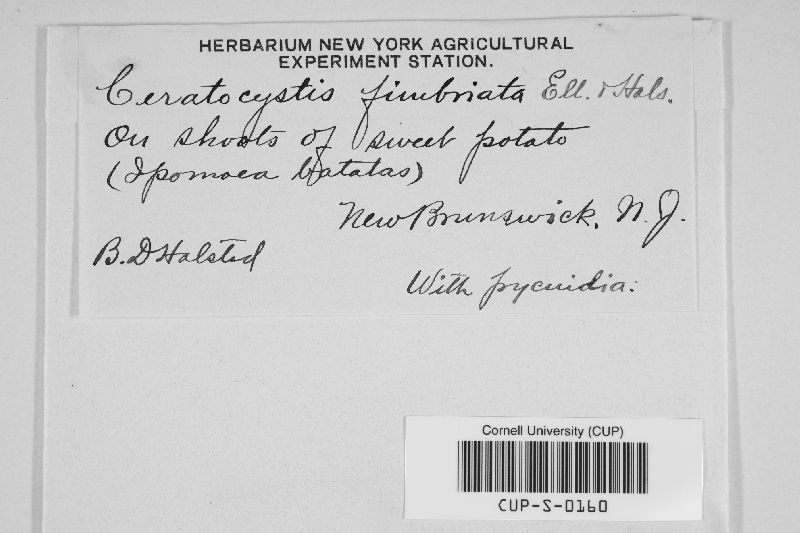 HERBARIUM NEW YORK AGRICULTURAL
EXPERIMENT STATION.
Ceratocystis fimbriata Ell. & Hals.
On shoots of sweet potato
(Ipomoea batatas)
New Brunswick, N. J.
B. D Halsted
With pycnidia.
Cornell University (CUP)
CUP-S-0160